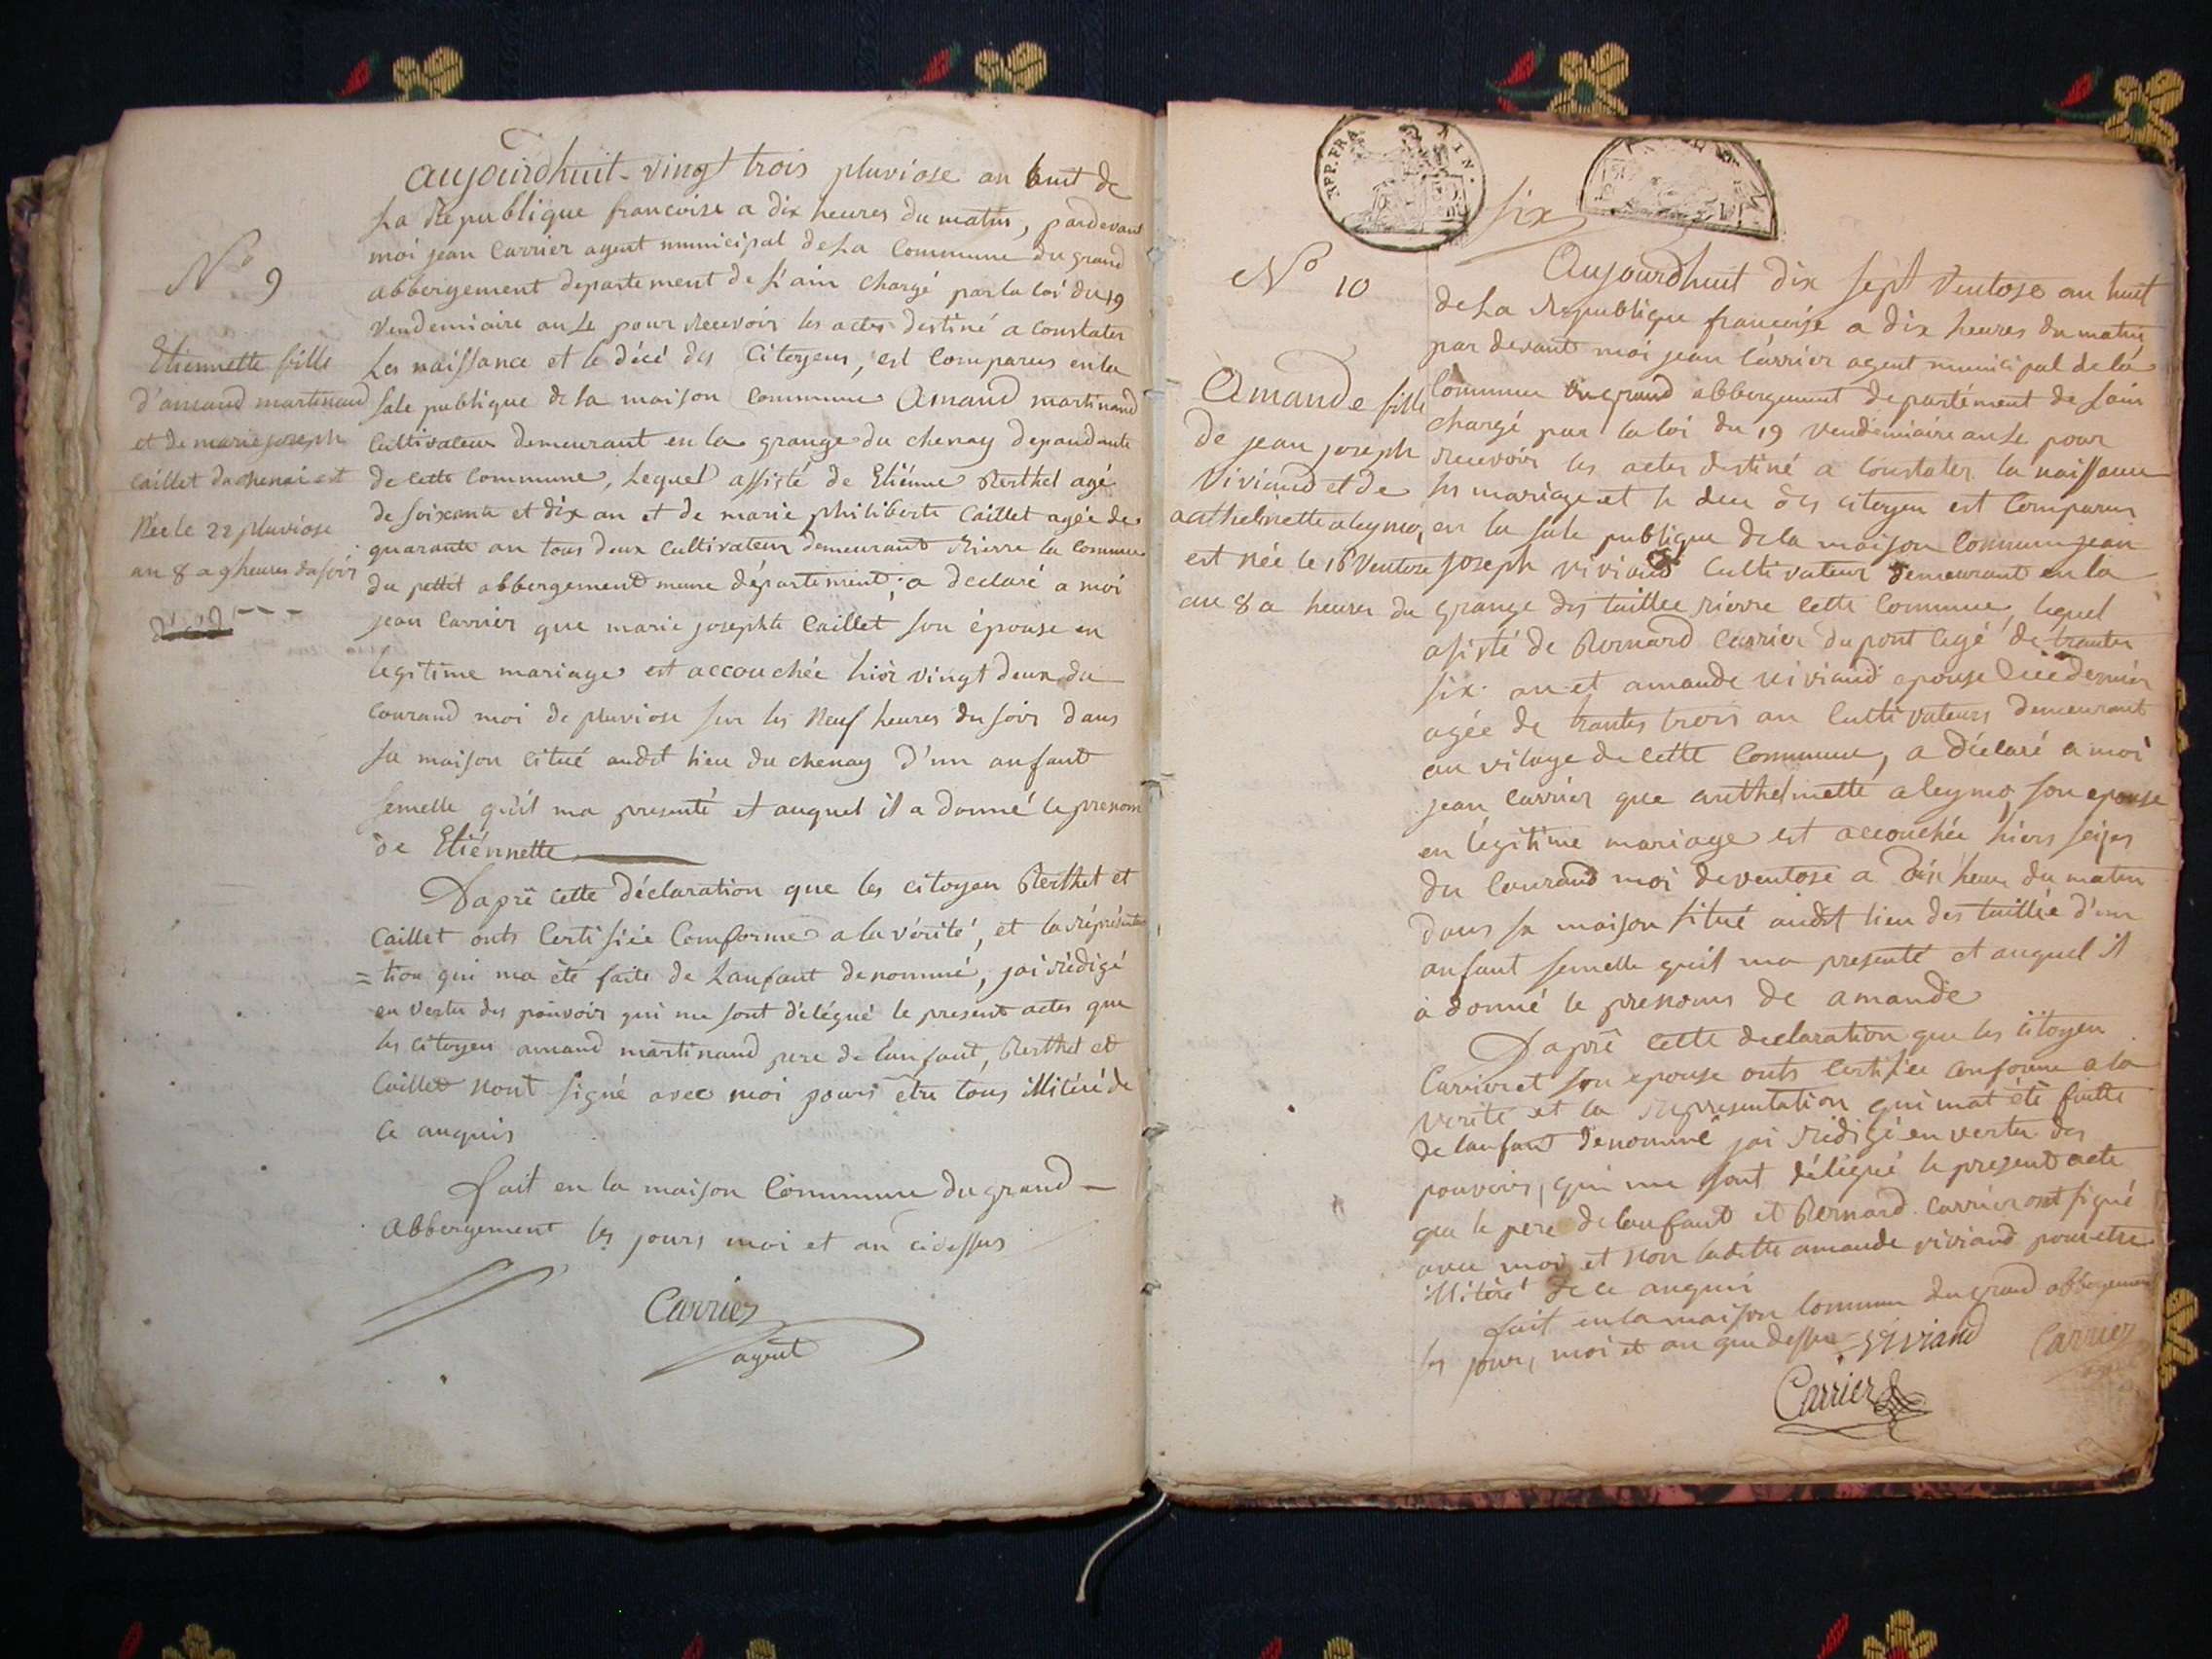 aujourdhuit vingt trois pluviose an huit de
La Republique francoise a dix heures du matin, pardevant
moi jean Carrier agent municipal de La Commune du grand
abbergement departement de L'ain chargé par la loi du 19
Vendemiaire an 4e pour recevoir les actes destiné a constater
Les naissance et le décé des Citoyens, est Comparus en la
sale publique de la maison Commune Amand martinand
Cultivateur demeurant en la grange du chenay depandante
de cette Commune, Lequel assisté de Etiénne Berthet agé
de soixante et dix an et de marie philiberte Caillet agée de
quarante an tous deux Cultivateur demeurant rierre la Commune
du petit abbergement meme département, a declaré a moi
jean Carrier que marie josephte Caillet son épouse en
legitime mariage est accouchée hiér vingt deux du
Courand moi de pluviose sur les Neuf heures du soir dans
sa maison citué audit lieu du chenay d'un anfant
femelle qu'il ma presenté et auquel il a donné le prenom
de Etiénnette
Daprè cette déclaration que les citoyen Berthet et
Caillet onts Certifiée Comforme a la vérité, et la réprésenta
= tion qui ma été faite de Lanfant denommé, jai rédigé
en vertu des pouvoir qui me sont délégué le present actes que
les citoyen amand martinand pere de lanfant, Berthet et
Caillet nont signé avec moi pour étre tous illitéré de
ce anquis
fait en la maison Commune du grand
Abbergement les jours moi et an cidessus
Carrier
agent
No 9
Etiennette fille
d'amand martinand
et de marie joseph
Caillet du chenai est
Née le 22 pluviose
an 8 a 9 heures du soir
décéd
six
No 10
Aujourdhuit dix sept Ventose an huit
de La Republique françoise a dix heures du matin
par devant moi jean Carrier agent municipal de la
Commune du grand abbergement departément de Lain
chargé par la loi du 19 vendemiaire an 4e pour
recevoir les actes destiné a constater la naissance
les mariage et le des citoyen est Comparus
en la sale publique de la maison Commune jean
joseph viviand Cultivateur demeurant en la
grange des taillée rierre cette Commune, lequel
asisté de Bernard Carrier du pont agé de trante
six an et amande viviand epouse dernier
agée de trante trois an Cultivateurs demeurant
au vilage de cette Commune, a déclaré a moi
jean Carrier que anthelmette aleymo, son epouse
en legitime mariage est accouchée hiers seizes
du Courand moi de ventose a Dix heure du matin
dans sa maison situé audit lieu des taillée d'un
anfant femelle quil ma presenté et auquel il
a donné le prenoms de amande
Daprè cette declaration que les citoyen
Carrier et son epouse onts certifiée conforme a la
verité et la représentation qui mat été faitte
de lanfant denommé jai rédigé en vertu des
pouvoirs, qui me sont délégué le present acte
que le pere de lanfant et Bernard Carrier ont signé
avec moi et non ladite amande viviand pour etre
illitéré de ce anquis
fait en la maison Commune du grand abbergement
les jours, moi et an que dessus Viviand Carrier
Carrier
Amande fille
de jean joseph
Viviand et de
anthelmette aleymo,
est née le 16 Ventose
an 8 a heures du